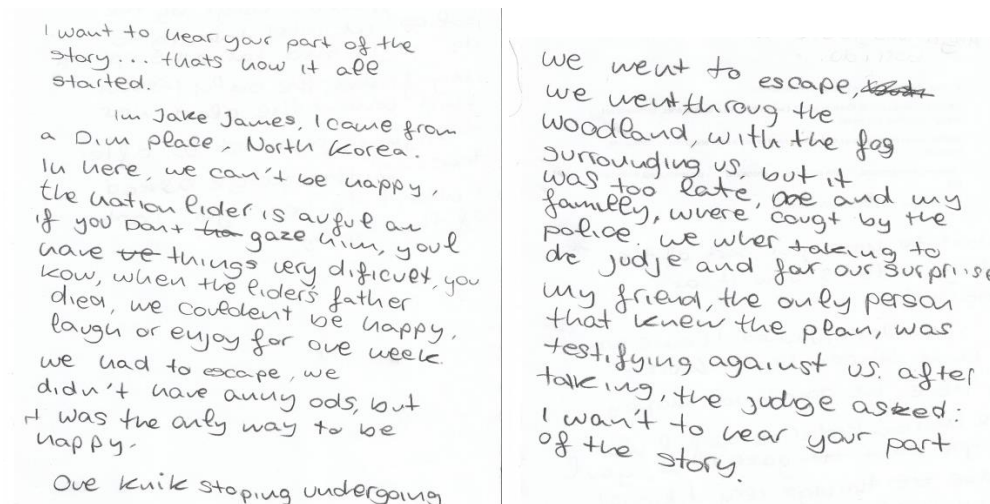 I want to hear your part of the
story... thats how it all
started.
Im Jake James, I came from
a Dim place, North Korea.
In here, we can't be happy,
the nation lider is auful an
if you Dont gaze him, youl
have things very dificult, you
kow, when the liders father
died, we couldent be happy,
laugh or enjoy for one week.
we had to escape, we
didn't have anny ods, but
it was the only way to be
happy.
One knik stoping undergoing
we went to escape,
we went throug the
woodland, with the fog
surrounding us, but it
was too late, and my
familly, where cougt by the
police. we wher taking to
de judge and for our surpriise
my friend, the only person
that knew the plan, was
testifying against us. after
talking, the judge asked:
I wan't to hear your part
of the story.